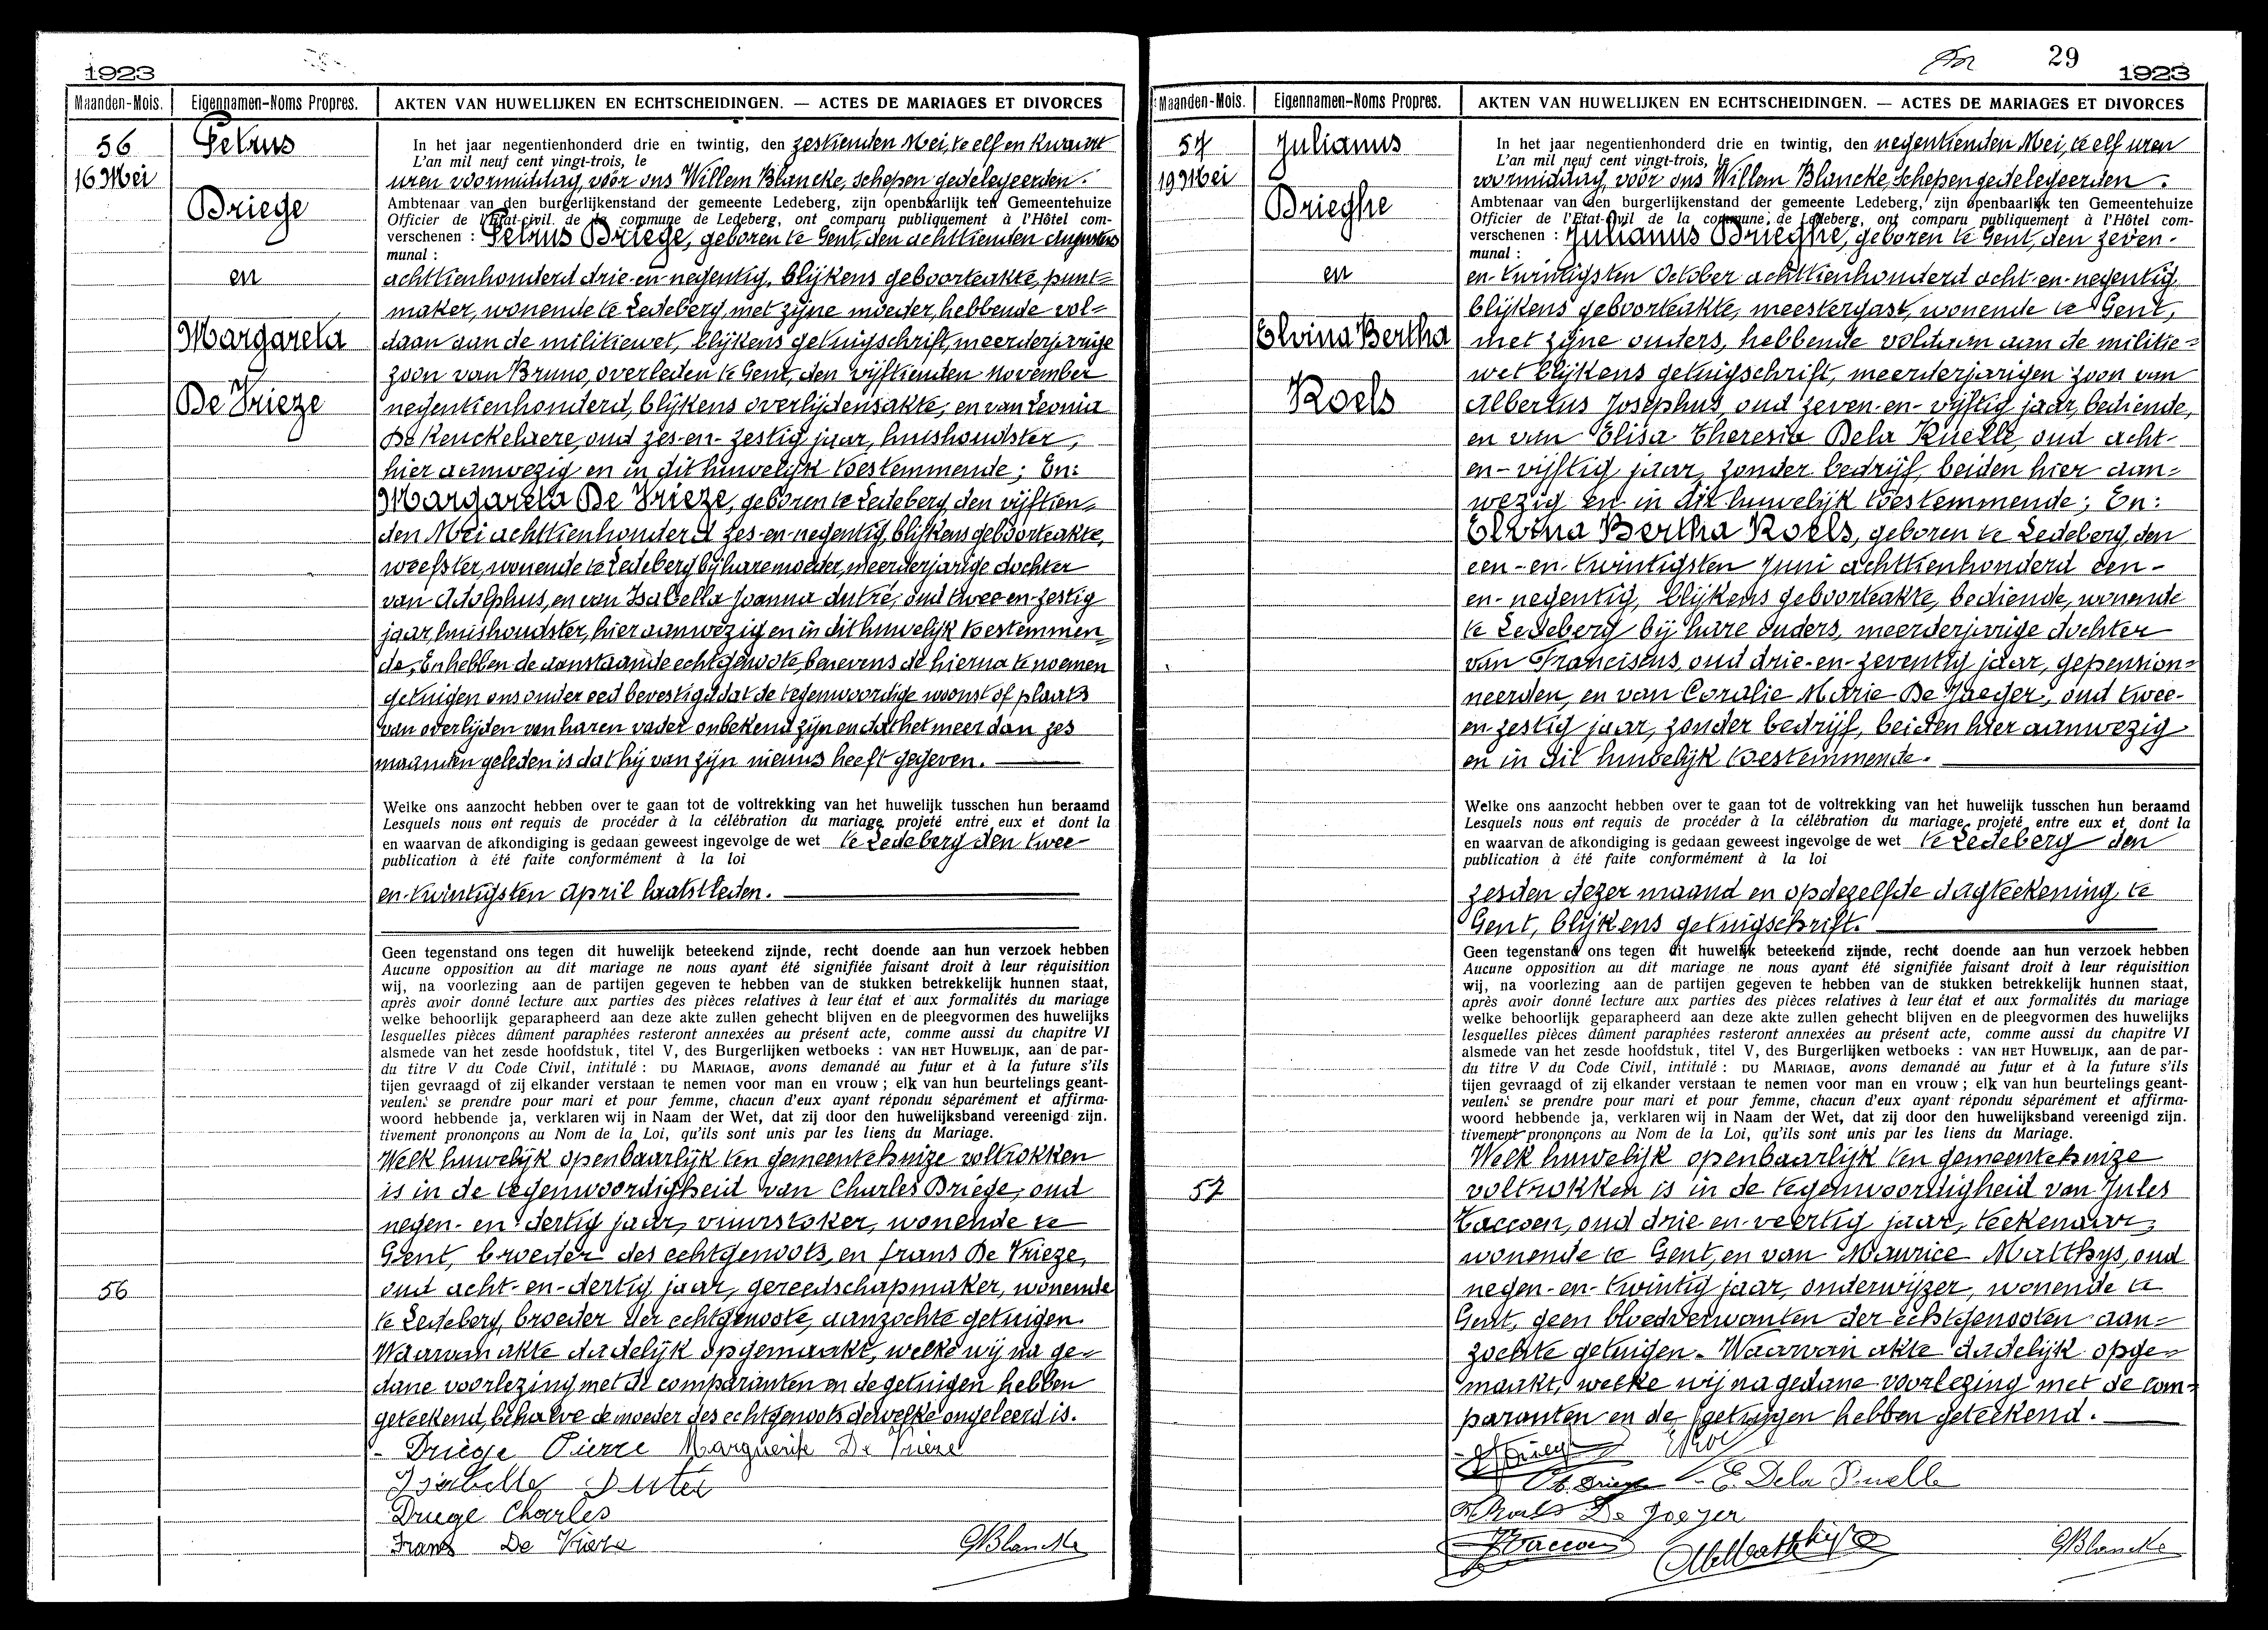 1923
Maanden-Mois. Eigennamen-Noms Propres. AKTEN VAN HUWELIJKEN EN ECHTSCHEIDINGEN. — ACTES DE MARIAGES ET DIVORCES
56
16 Mei
Petrus
Briege
en
Margareta
De Vrieze
In het jaar negentienhonderd drie en twintig, den zestienden Mei, te elf en kwaart
L'an mil neuf cent vingt-trois, le
uren voormiddag, vóór ons Willem Blancke, schepen gedelegeerden.
Ambtenaar van den burgerlijkenstand der gemeente Ledeberg, zijn openbaarlijk ten Gemeentehuize
Officier de l'Etat-civil de la commune de Ledeberg, ont comparu publiquement à l'Hôtel com-
verschenen : Petrus Briege, geboren te Gent, den achttienden Augustus
munal :
achttienhonderd drie-en-negentig, blijkens geboorteakte, punt=
maker, wonende te Ledeberg, met zijne moeder, hebbende vol=
daan aan de militiewet, blijkens getuigschrift, meerderjarige
zoon van Bruno, overleden te Gent, den vijftienden November
negentienhonderd, blijkens overlijdensakte, en van Leonia
De Keuckelaere, oud zes-en-zestig jaar, huishoudster,
hier aanwezig en in dit huwelijk toestemmende; En:
Margareta De Vrieze, geboren te Ledeberg, den vijftien=
den Mei achttienhonderd zes-en-negentig, blijkens geboorteakte,
weefster, wonende te Ledeberg bij hare moeder, meerderjarige dochter
van Adolphus, en van Isabella Joanna Dutré, oud twee-en-zestig
jaar, huishoudster, hier aanwezig en in dit huwelijk toestemmen=
de. En hebben de aanstaande echtgenoote, benevens de hierna te noemen
getuigen ons onder eed bevestigd dat de tegenwoordige woonst of plaats
van overlijden van haren vader onbekend zijn en dat het meer dan zes
maanden geleden is dat hij van zijn nieuws heeft gegeven.
Welke ons aanzocht hebben over te gaan tot de voltrekking van het huwelijk tusschen hun beraamd
Lesquels nous ont requis de procéder à la célébration du mariage projeté entre eux et dont la
en waarvan de afkondiging is gedaan geweest ingevolge de wet te Ledeberg den twee
publication à été faite conformément à la loi
en-twintigsten April laatstleden.
Geen tegenstand ons tegen dit huwelijk beteekend zijnde, recht doende aan hun verzoek hebben
Aucune opposition au dit mariage ne nous ayant été signifiée faisant droit à leur réquisition
wij, na voorlezing aan de partijen gegeven te hebben van de stukken betrekkelijk hunnen staat,
après avoir donné lecture aux parties des pièces relatives à leur état et aux formalités du mariage
welke behoorlijk geparapheerd aan deze akte zullen gehecht blijven en de pleegvormen des huwelijks
lesquelles pièces dûment paraphées resteront annexées au présent acte, comme aussi du chapitre VI
alsmede van het zesde hoofdstuk, titel V, des Burgerlijken wetboeks : VAN HET HUWELIJK, aan de par-
du titre V du Code Civil, intitulé : DU MARIAGE, avons demandé au futur et à la future s'ils
tijen gevraagd of zij elkander verstaan te nemen voor man en vrouw ; elk van hun beurtelings geant-
veulent se prendre pour mari et pour femme, chacun d'eux ayant répondu séparément et affirma-
woord hebbende ja, verklaren wij in Naam der Wet, dat zij door den huwelijksband vereenigd zijn.
tivement prononçons au Nom de la Loi, qu'ils sont unis par les liens du Mariage.
Welk huwelijk openbaarlijk ten gemeentehuize voltrokken
is in de tegenwoordigheid van Charles Briege, oud
negen-en-dertig jaar, vuurstoker, wonende te
Gent, broeder des echtgenoots, en frans De Vrieze,
56
oud acht-en-dertig jaar, gereedschapmaker, wonende
te Ledeberg, broeder der echtgenoote, aanzochte getuigen.
Waarvan akte dadelijk opgemaakt, welke wij na ge=
dane voorlezing met de comparanten en de getuigen hebben
geteekend, behalve de moeder des echtgenoots dewelke ongeleerd is.
Briege Pierre Marguerite De Vrieze
Isabelle Dutré
Briege Charles
Frans De Vrieze GBlancke
29
1923
Maanden-Mois. Eigennamen-Noms Propres. AKTEN VAN HUWELIJKEN EN ECHTSCHEIDINGEN. — ACTES DE MARIAGES ET DIVORCES
57
19 Mei
Julianus
Brieghe
en
Elvina Bertha
Roels
In het jaar negentienhonderd drie en twintig, den negentienden Mei, te elf uren
L'an mil neuf cent vingt-trois, le
voormiddag, vóór ons Willem Blancke, Schepen gedelegeerden.
Ambtenaar van den burgerlijkenstand der gemeente Ledeberg, zijn openbaarlijk ten Gemeentehuize
Officier de l'Etat-civil de la commune de Ledeberg, ont comparu publiquement à l'Hôtel com-
verschenen : Julianus Brieghe, geboren te Gent, den zeven-
munal :
en-twintigsten October achttienhonderd acht-en-negentig
blijkens geboorteakte, meestergast, wonende te Gent,
met zijne ouders, hebbende voldaan aan de militie=
wet blijkens getuigschrift, meerderjarigen zoon van
Albertus Josephus, oud zeven-en-vijftig jaar, bediende,
en van Elisa Theresia Dela Ruelle, oud acht-
en-vijftig jaar, zonder bedrijf, beiden hier aan=
wezig en in dit huwelijk toestemmende; En:
Elvina Bertha Roels, geboren te Ledeberg, den
een-en-twintigsten Juni achttienhonderd een-
en-negentig, blijkens geboorteakte, bediende, wonende
te Ledeberg bij hare ouders, meerderjarige dochter
van Franciscus, oud drie-en-zeventig jaar, gepension=
neerden, en van Coralie Marie De Jaeger, oud twee-
en-zestig jaar, zonder bedrijf, beiden hier aanwezig
en in dit huwelijk toestemmende.
Welke ons aanzocht hebben over te gaan tot de voltrekking van het huwelijk tusschen hun beraamd
Lesquels nous ont requis de procéder à la célébration du mariage projeté entre eux et dont la
en waarvan de afkondiging is gedaan geweest ingevolge de wet te Ledeberg den
publication à été faite conformément à la loi
zesden dezer maand en op dezelfde dagteekening te
Gent, blijkens getuigschrift.
Geen tegenstand ons tegen dit huwelijk beteekend zijnde, recht doende aan hun verzoek hebben
Aucune opposition au dit mariage ne nous ayant été signifiée faisant droit à leur réquisition
wij, na voorlezing aan de partijen gegeven te hebben van de stukken betrekkelijk hunnen staat,
après avoir donné lecture aux parties des pièces relatives à leur état et aux formalités du mariage
welke behoorlijk geparapheerd aan deze akte zullen gehecht blijven en de pleegvormen des huwelijks
lesquelles pièces dûment paraphées resteront annexées au présent acte, comme aussi du chapitre VI
alsmede van het zesde hoofdstuk, titel V, des Burgerlijken wetboeks : VAN HET HUWELIJK, aan de par-
du titre V du Code Civil, intitulé : DU MARIAGE, avons demandé au futur et à la future s'ils
tijen gevraagd of zij elkander verstaan te nemen voor man en vrouw ; elk van hun beurtelings geant-
veulent se prendre pour mari et pour femme, chacun d'eux ayant répondu séparément et affirma-
woord hebbende ja, verklaren wij in Naam der Wet, dat zij door den huwelijksband vereenigd zijn.
tivement prononçons au Nom de la Loi, qu'ils sont unis par les liens du Mariage.
Welk huwelijk openbaarlijk ten gemeentehuize
57
voltrokken is in de tegenwoordigheid van Jules
Taccoen, oud drie-en-veertig jaar, teekenaar,
wonende te Gent, en van Maurice Matthys, oud
negen-en-twintig jaar, onderwijzer, wonende te
Gent, geen bloedverwanten der echtgenooten aan=
zochte getuigen. Waarvan akte dadelijk opge=
maakt, welke wij na gedane voorlezing met de com=
paranten en de getuigen hebben geteekend.
E. Dela Ruelle
Roels De Jaeger
JTaccoen MMatthijs GBlancke